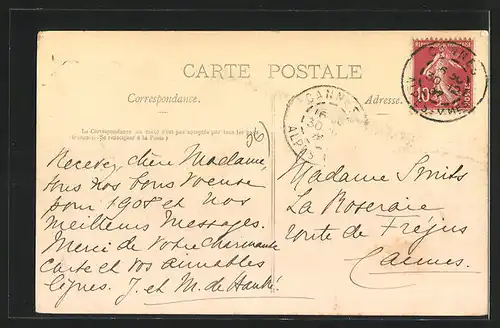 CARTE POSTALE
Correspondance.
Adresse.
La Correspondance au recto n'est pas acceptée par tous les pays
étrangers. (Se renseigner à la Poste)
Recevez, chère Madame,
tous nos bons voeux
pour 1908 et nos
meilleurs messages.
Merci de votre charmante
carte et vos aimables
lignes. J. et M. de
Madame Smits
La Roseraie
route de Fréjus
Cannes.
CANNES
ALPES
10